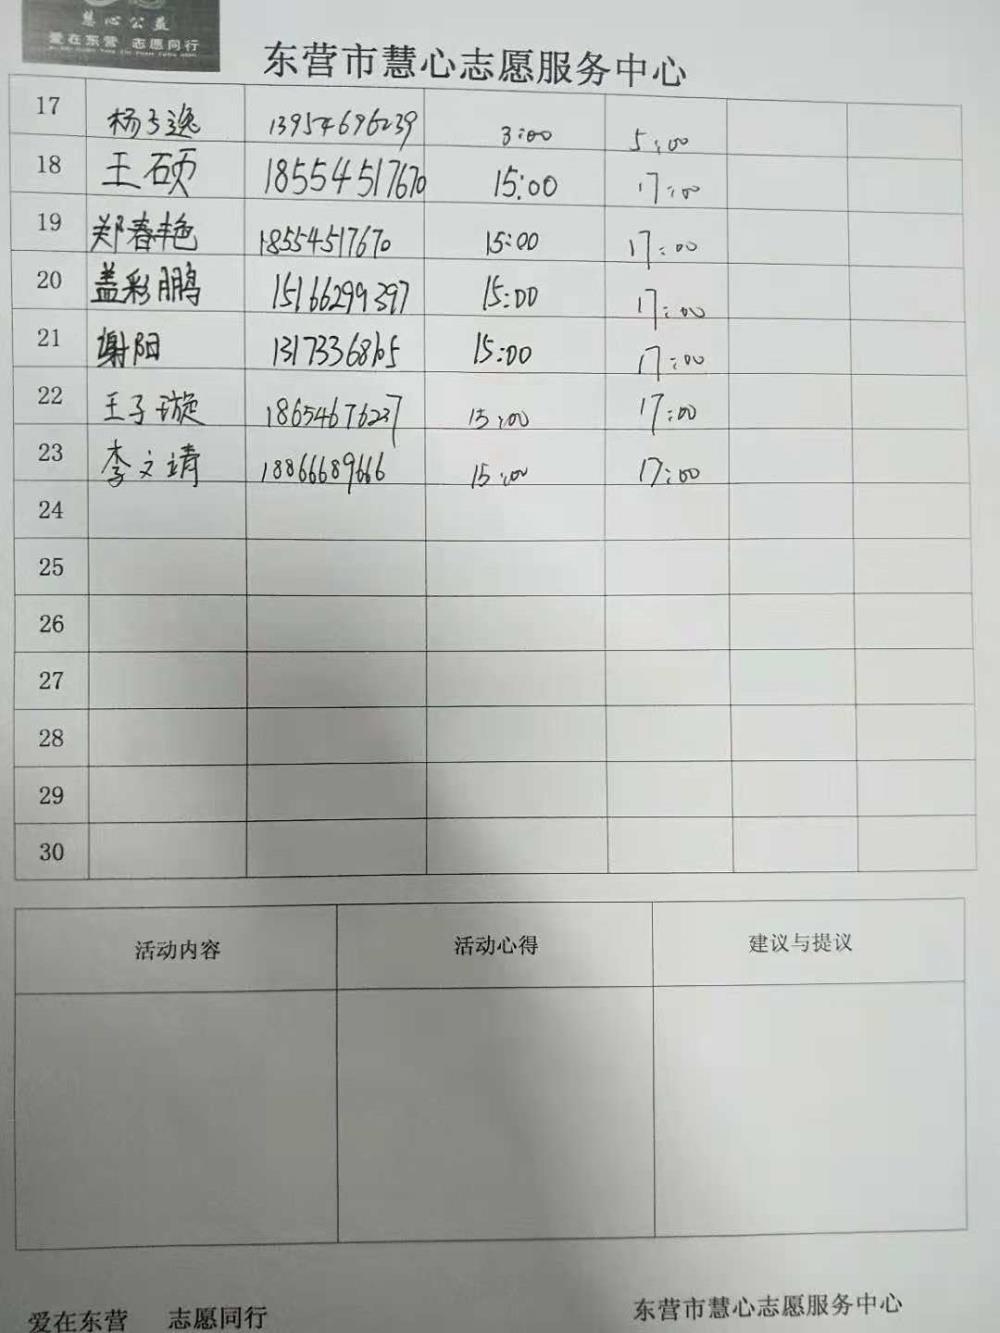 慧心公益
爱在东营 志愿同行
东营市慧心志愿服务中心
17 杨子逸 13954696239 3:00 5:00
18 王硕 18554517670 15:00 17:00
19 郑春艳 18554517670 15:00 17:00
20 盖彩鹏 15166299397 15:00 17:00
21 谢阳 13173368165 15:00 17:00
22 王子璇 18654676237 15:00 17:00
23 李文靖 18866689666 15:00 17:00
24
25
26
27
28
29
30
活动内容 活动心得 建议与提议
爱在东营 志愿同行 东营市慧心志愿服务中心